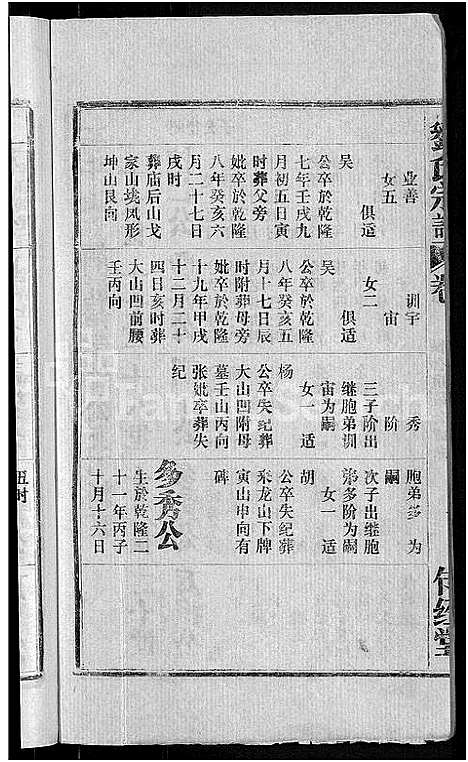 劉氏宗譜 卷
业善
女五
俱适
吴
公卒於乾隆
七年壬戌九
月初五日寅
時葬父旁
妣卒於乾隆
八年癸亥六
月二十七日
戌时
葬庙后山戈
家山挑凤形
坤山艮向
训宇
宙
女二
俱适
吴
公卒於乾隆
八年癸亥五
月十七日辰
时附葬母旁
妣卒於乾隆
十九年甲戌
十二月二十
四日亥时葬
大山凹前腰
壬丙向
秀
阶
三子阶出
继胞弟训
宙为嗣
女一适
杨
公卒失纪葬
大山凹附母
墓壬山丙向
张妣卒葬失
纪
胞弟多为
嗣
次子出继胞
弟多阶为嗣
女一适
胡
公卒失纪葬
来龙山下牌
寅山申向有
碑
多秀公
生於乾隆二
十一年丙子
十月十六日
丑时